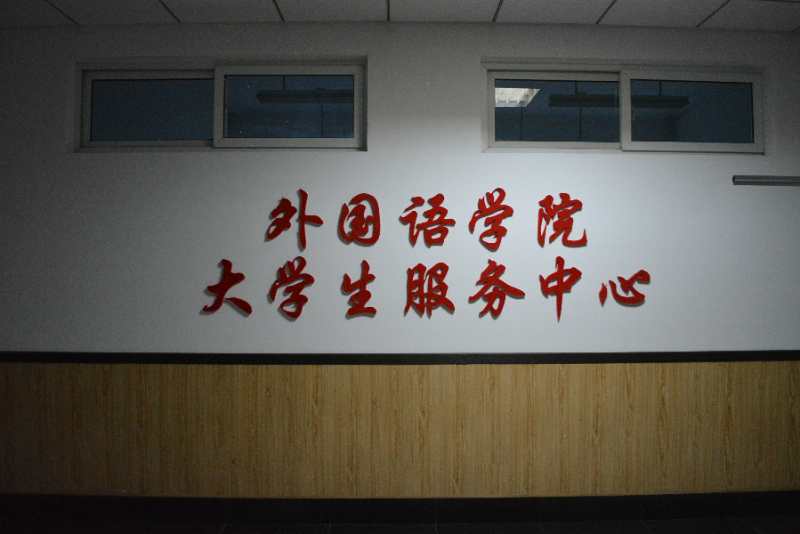 外国语学院
大学生服务中心